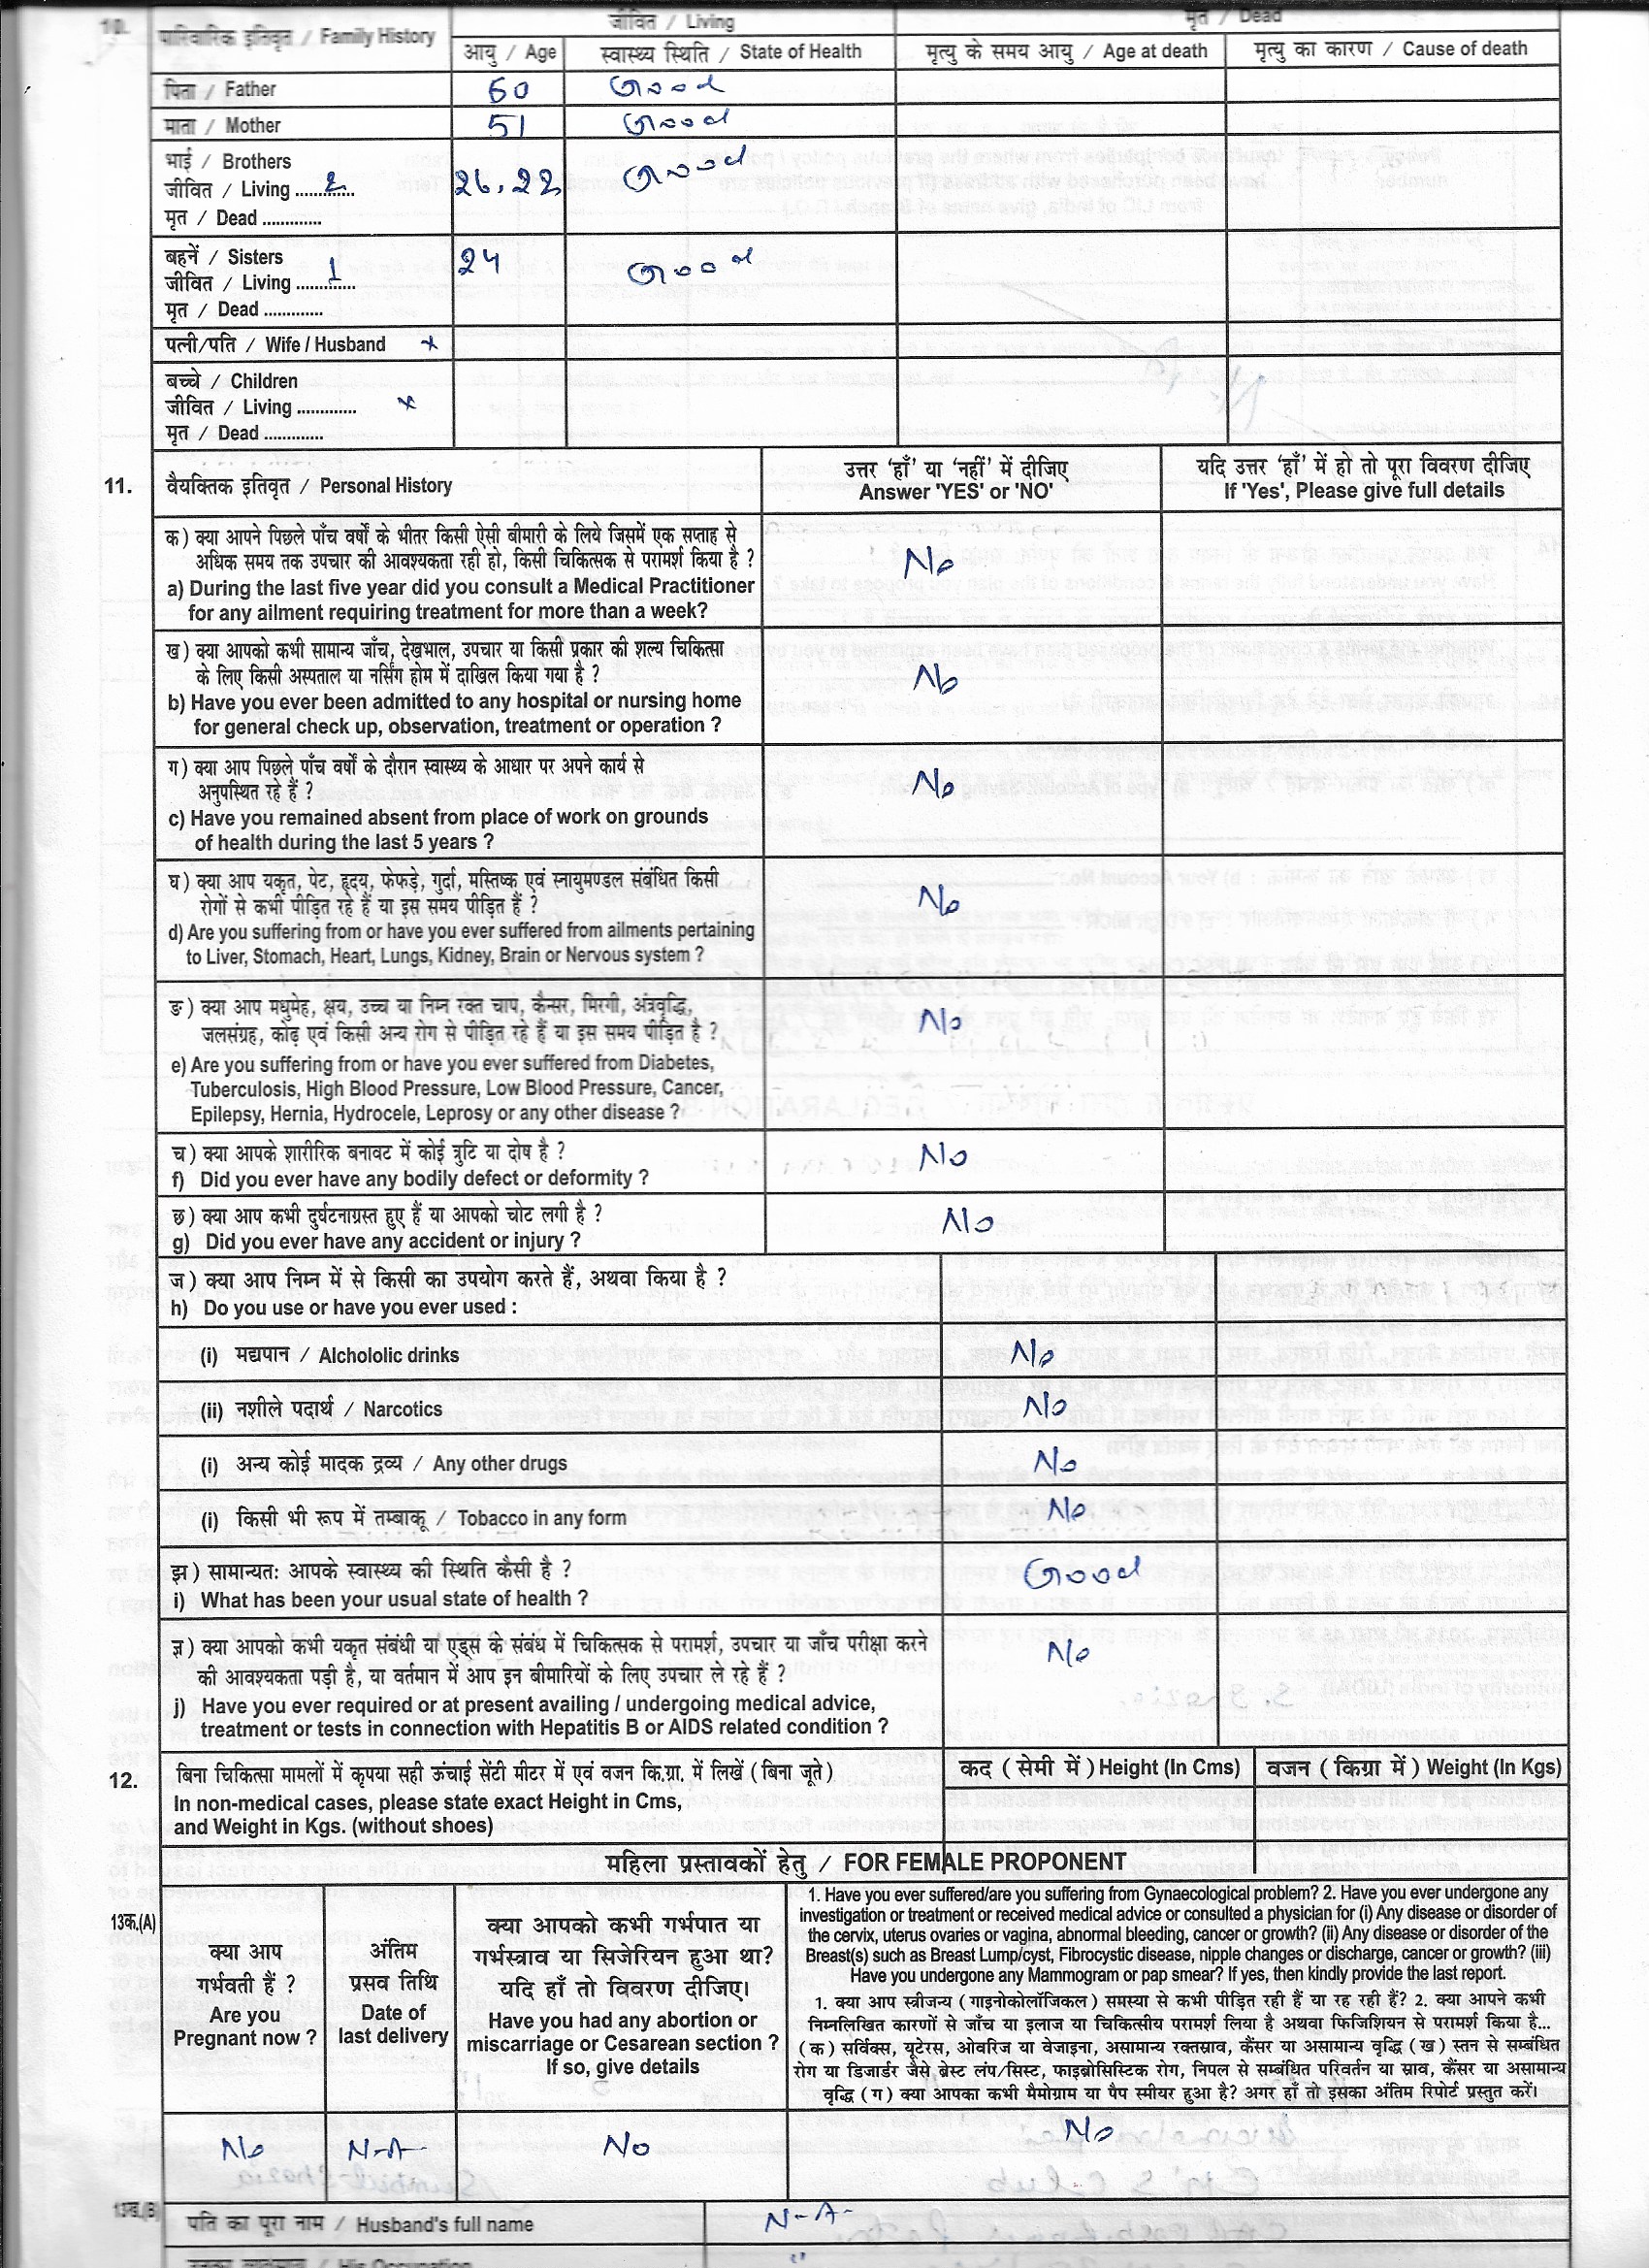 10. पारिवारिक इतिवृत / Family History
जीवित / Living
मृत / Dead
आयु / Age
स्वास्थ्य स्थिति / State of Health
मृत्यु के समय आयु / Age at death
मृत्यु का कारण / Cause of death
पिता / Father 60 Good
माता / Mother 51 Good
भाई / Brothers
जीवित / Living ............ 2 26, 22 Good
मृत / Dead ............
बहनें / Sisters 24 Good
जीवित / Living ............ 1
मृत / Dead ............
पत्नी/पति / Wife / Husband x
बच्चे / Children
जीवित / Living ............ x
मृत / Dead ............
11. वैयक्तिक इतिवृत / Personal History
उत्तर ‘हाँ’ या ‘नहीं’ में दीजिए
Answer 'YES' or 'NO'
यदि उत्तर ‘हाँ’ में हो तो पूरा विवरण दीजिए
If 'Yes', Please give full details
क) क्या आपने पिछले पाँच वर्षों के भीतर किसी ऐसी बीमारी के लिये जिसमें एक सप्ताह से
अधिक समय तक उपचार की आवश्यकता रही हो, किसी चिकित्सक से परामर्श किया है ? No
a) During the last five year did you consult a Medical Practitioner
for any ailment requiring treatment for more than a week?
ख) क्या आपको कभी सामान्य जाँच, देखभाल, उपचार या किसी प्रकार की शल्य चिकित्सा
के लिए किसी अस्पताल या नर्सिंग होम में दाखिल किया गया है ? No
b) Have you ever been admitted to any hospital or nursing home
for general check up, observation, treatment or operation ?
ग) क्या आप पिछले पाँच वर्षों के दौरान स्वास्थ्य के आधार पर अपने कार्य से
अनुपस्थित रहे हैं ? No
c) Have you remained absent from place of work on grounds
of health during the last 5 years ?
घ) क्या आप यकृत, पेट, हृदय, फेफड़े, गुर्दा, मस्तिष्क एवं स्नायुमण्डल संबंधित किसी
रोगों से कभी पीड़ित रहे हैं या इस समय पीड़ित हैं ? No
d) Are you suffering from or have you ever suffered from ailments pertaining
to Liver, Stomach, Heart, Lungs, Kidney, Brain or Nervous system ?
ङ) क्या आप मधुमेह, क्षय, उच्च या निम्न रक्त चाप, कैन्सर, मिरगी, अंत्रवृद्धि,
जलसंग्रह, कोढ़ एवं किसी अन्य रोग से पीड़ित रहे हैं या इस समय पीड़ित है ? No
e) Are you suffering from or have you ever suffered from Diabetes,
Tuberculosis, High Blood Pressure, Low Blood Pressure, Cancer,
Epilepsy, Hernia, Hydrocele, Leprosy or any other disease ?
च) क्या आपके शारीरिक बनावट में कोई त्रुटि या दोष है ? No
f) Did you ever have any bodily defect or deformity ?
छ) क्या आप कभी दुर्घटनाग्रस्त हुए हैं या आपको चोट लगी है ? No
g) Did you ever have any accident or injury ?
ज) क्या आप निम्न में से किसी का उपयोग करते हैं, अथवा किया है ?
h) Do you use or have you ever used :
(i) मद्यपान / Alchololic drinks No
(ii) नशीले पदार्थ / Narcotics No
(i) अन्य कोई मादक द्रव्य / Any other drugs No
(i) किसी भी रूप में तम्बाकू / Tobacco in any form No
झ) सामान्यतः आपके स्वास्थ्य की स्थिति कैसी है ? Good
i) What has been your usual state of health ?
ञ) क्या आपको कभी यकृत संबंधी या एड्स के संबंध में चिकित्सक से परामर्श, उपचार या जाँच परीक्षा करने
की आवश्यकता पड़ी है, या वर्तमान में आप इन बीमारियों के लिए उपचार ले रहे हैं ? No
j) Have you ever required or at present availing / undergoing medical advice,
treatment or tests in connection with Hepatitis B or AIDS related condition ?
12. बिना चिकित्सा मामलों में कृपया सही ऊंचाई सेंटी मीटर में एवं वजन कि.ग्रा. में लिखें (बिना जूते)
In non-medical cases, please state exact Height in Cms,
and Weight in Kgs. (without shoes)
कद (सेमी में) Height (In Cms)
वजन (किग्रा में) Weight (In Kgs)
महिला प्रस्तावकों हेतु / FOR FEMALE PROPONENT
13क.(A)
क्या आप
गर्भवती हैं ?
Are you
Pregnant now ?
अंतिम
प्रसव तिथि
Date of
last delivery
क्या आपको कभी गर्भपात या
गर्भस्त्राव या सिजेरियन हुआ था?
यदि हाँ तो विवरण दीजिए।
Have you had any abortion or
miscarriage or Cesarean section ?
If so, give details
1. Have you ever suffered/are you suffering from Gynaecological problem? 2. Have you ever undergone any
investigation or treatment or received medical advice or consulted a physician for (i) Any disease or disorder of
the cervix, uterus ovaries or vagina, abnormal bleeding, cancer or growth? (ii) Any disease or disorder of the
Breast(s) such as Breast Lump/cyst, Fibrocystic disease, nipple changes or discharge, cancer or growth? (iii)
Have you undergone any Mammogram or pap smear? If yes, then kindly provide the last report.
1. क्या आप स्त्रीजन्य (गाइनोकोलॉजिकल) समस्या से कभी पीड़ित रही हैं या रह रही हैं? 2. क्या आपने कभी
निम्नलिखित कारणों से जाँच या इलाज या चिकित्सीय परामर्श लिया है अथवा फिजिशियन से परामर्श किया है...
(क) सर्विक्स, यूटेरस, ओवरिज या वेजाइना, असामान्य रक्तस्राव, कैंसर या असामान्य वृद्धि (ख) स्तन से सम्बंधित
रोग या डिजार्डर जैसे ब्रेस्ट लंप/सिस्ट, फाइब्रोसिस्टिक रोग, निपल से सम्बंधित परिवर्तन या स्राव, कैंसर या असामान्य
वृद्धि (ग) क्या आपका कभी मैमोग्राम या पैप स्मीयर हुआ है? अगर हाँ तो इसका अंतिम रिपोर्ट प्रस्तुत करें।
No N-A- No No
13ख.(B) पति का पूरा नाम / Husband's full name N-A-
/ His Occupation "